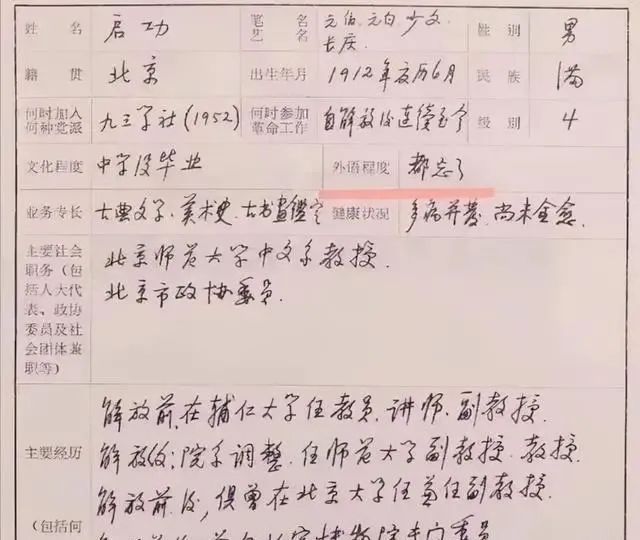 姓 名 启功 笔名艺名 元伯、元白、少文、长庆. 性别 男
籍贯 北京 出生年月 1912年农历6月 民族 满
何时加入何种党派 九三学社(1952) 何时参加革命工作 自解放后连续至今 级别 4
文化程度 中学没毕业 外语程度 都忘了
业务专长 古典文学、美术史、古书画鑑定 健康状况 多病并发、尚未全愈.
主要社会职务(包括人大代表、政协委员及社会团体兼职等)
北京师范大学中文系教授.
北京市政协委员.
主要经历
解放前,在辅仁大学任教员、讲师、副教授.
解放后:院系调整、任师范大学副教授、教授.
解放前后,俱曾在北京大学任兼任副教授.
(包括何